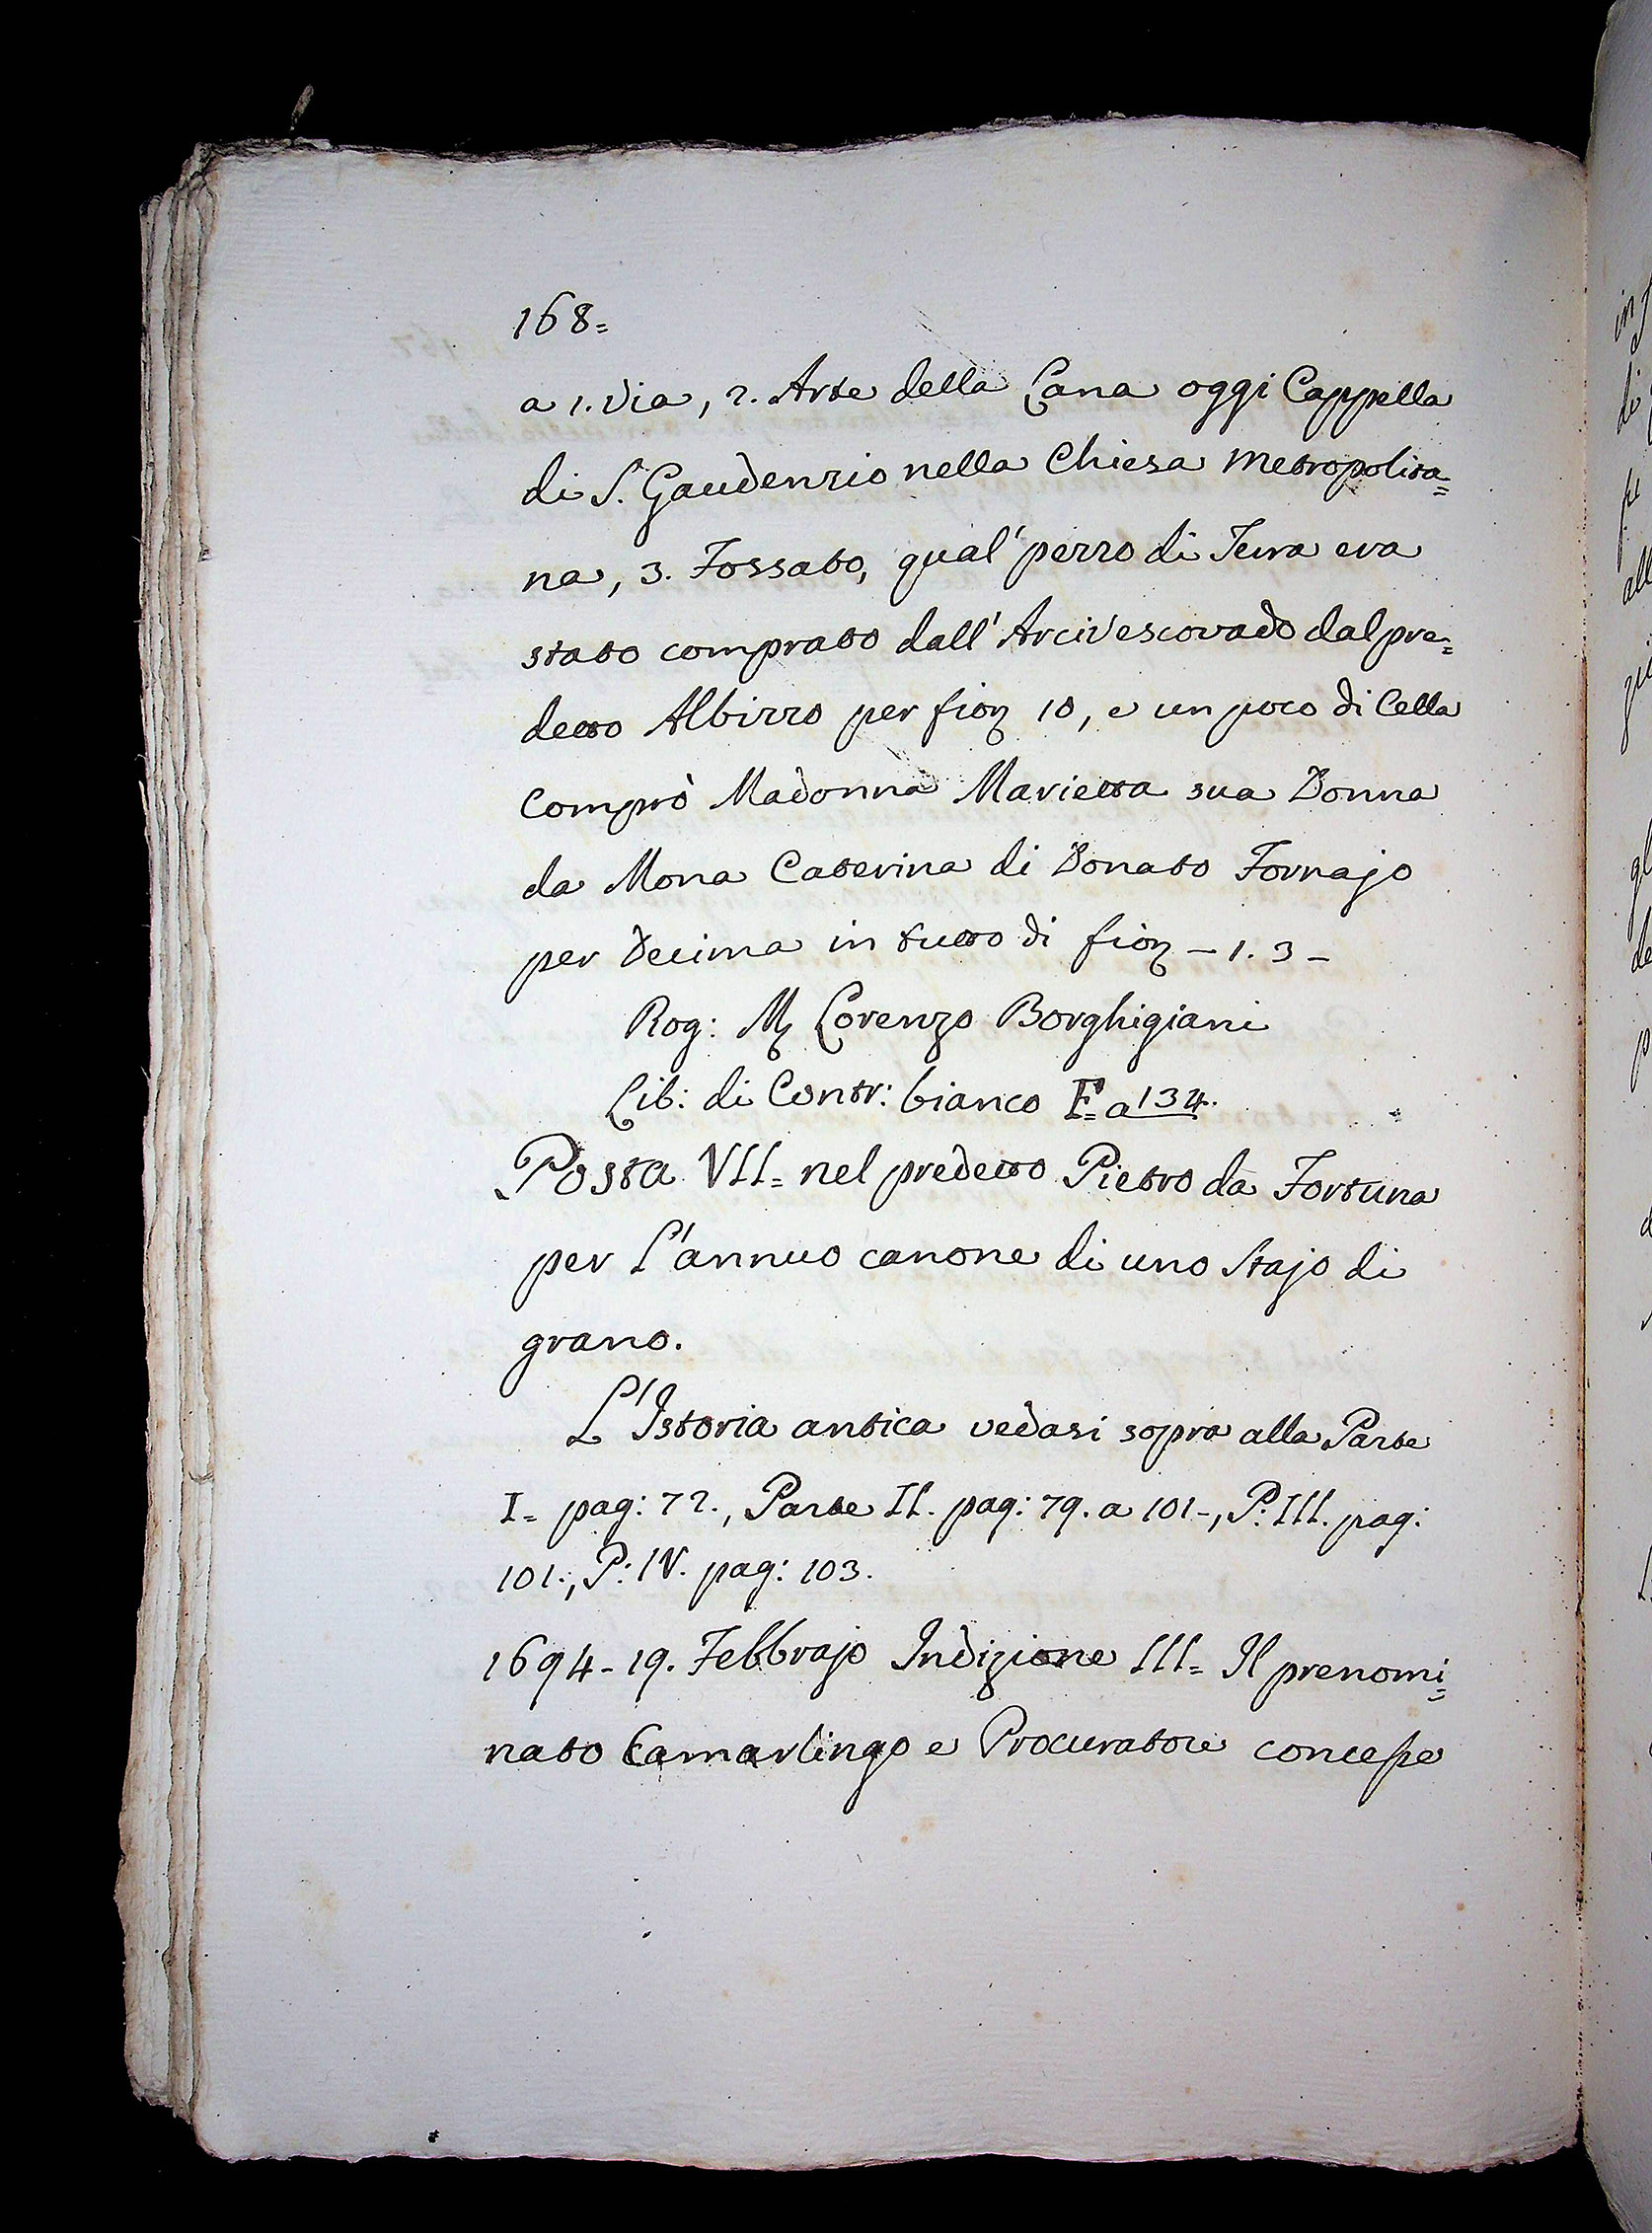 168=
a 1. Via, 2. Arte della Lana oggi Cappella
di S. Gaudenzio nella Chiesa Metropolita=
na, 3. Fossato, qual' pezzo di Terra era
stato comprato dall' Arcivescovado dal pre=
detto Albizzo per fior 10, e un poco di Cella
comprò Madonna Marietta sua Donna
da Mona Caterina di Donato Fornajo
per Decima in tutto di fior – 1. 3 –
Rog: M Lorenzo Borghigiani
Lib: di Contr: bianco F= a 134.
Posta VII= nel predetto Pietro da Fortuna
per l'annuo canone di uno Stajo di
grano.
L'Istoria antica vedasi sopra alla Parte
I= pag: 72., Parte II. pag: 79. a 101-, P: III. pag:
101., P: IV. pag: 103.
1694-19. Febbrajo Indizione III= Il prenomi=
nato Camarlingo e Procuratore concesse